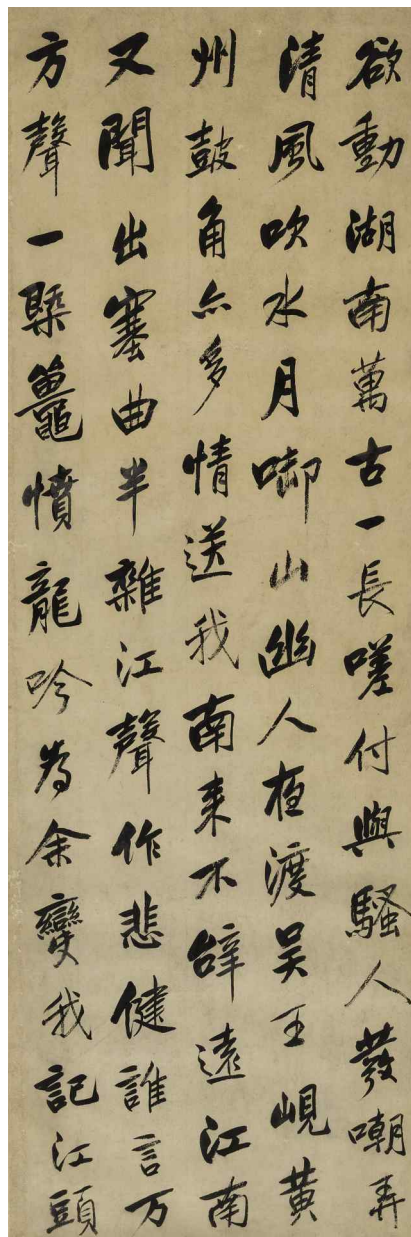 欲動湖南萬古一長嗟付與騷人發嘲弄
清風吹水月啣山幽人夜渡吳王峴黃
州鼓角亦多情送我南来不辭遠江南
又聞出塞曲半雜江聲作悲健誰言万
方聲一槩鼉憤龍吟為余變我記江頭